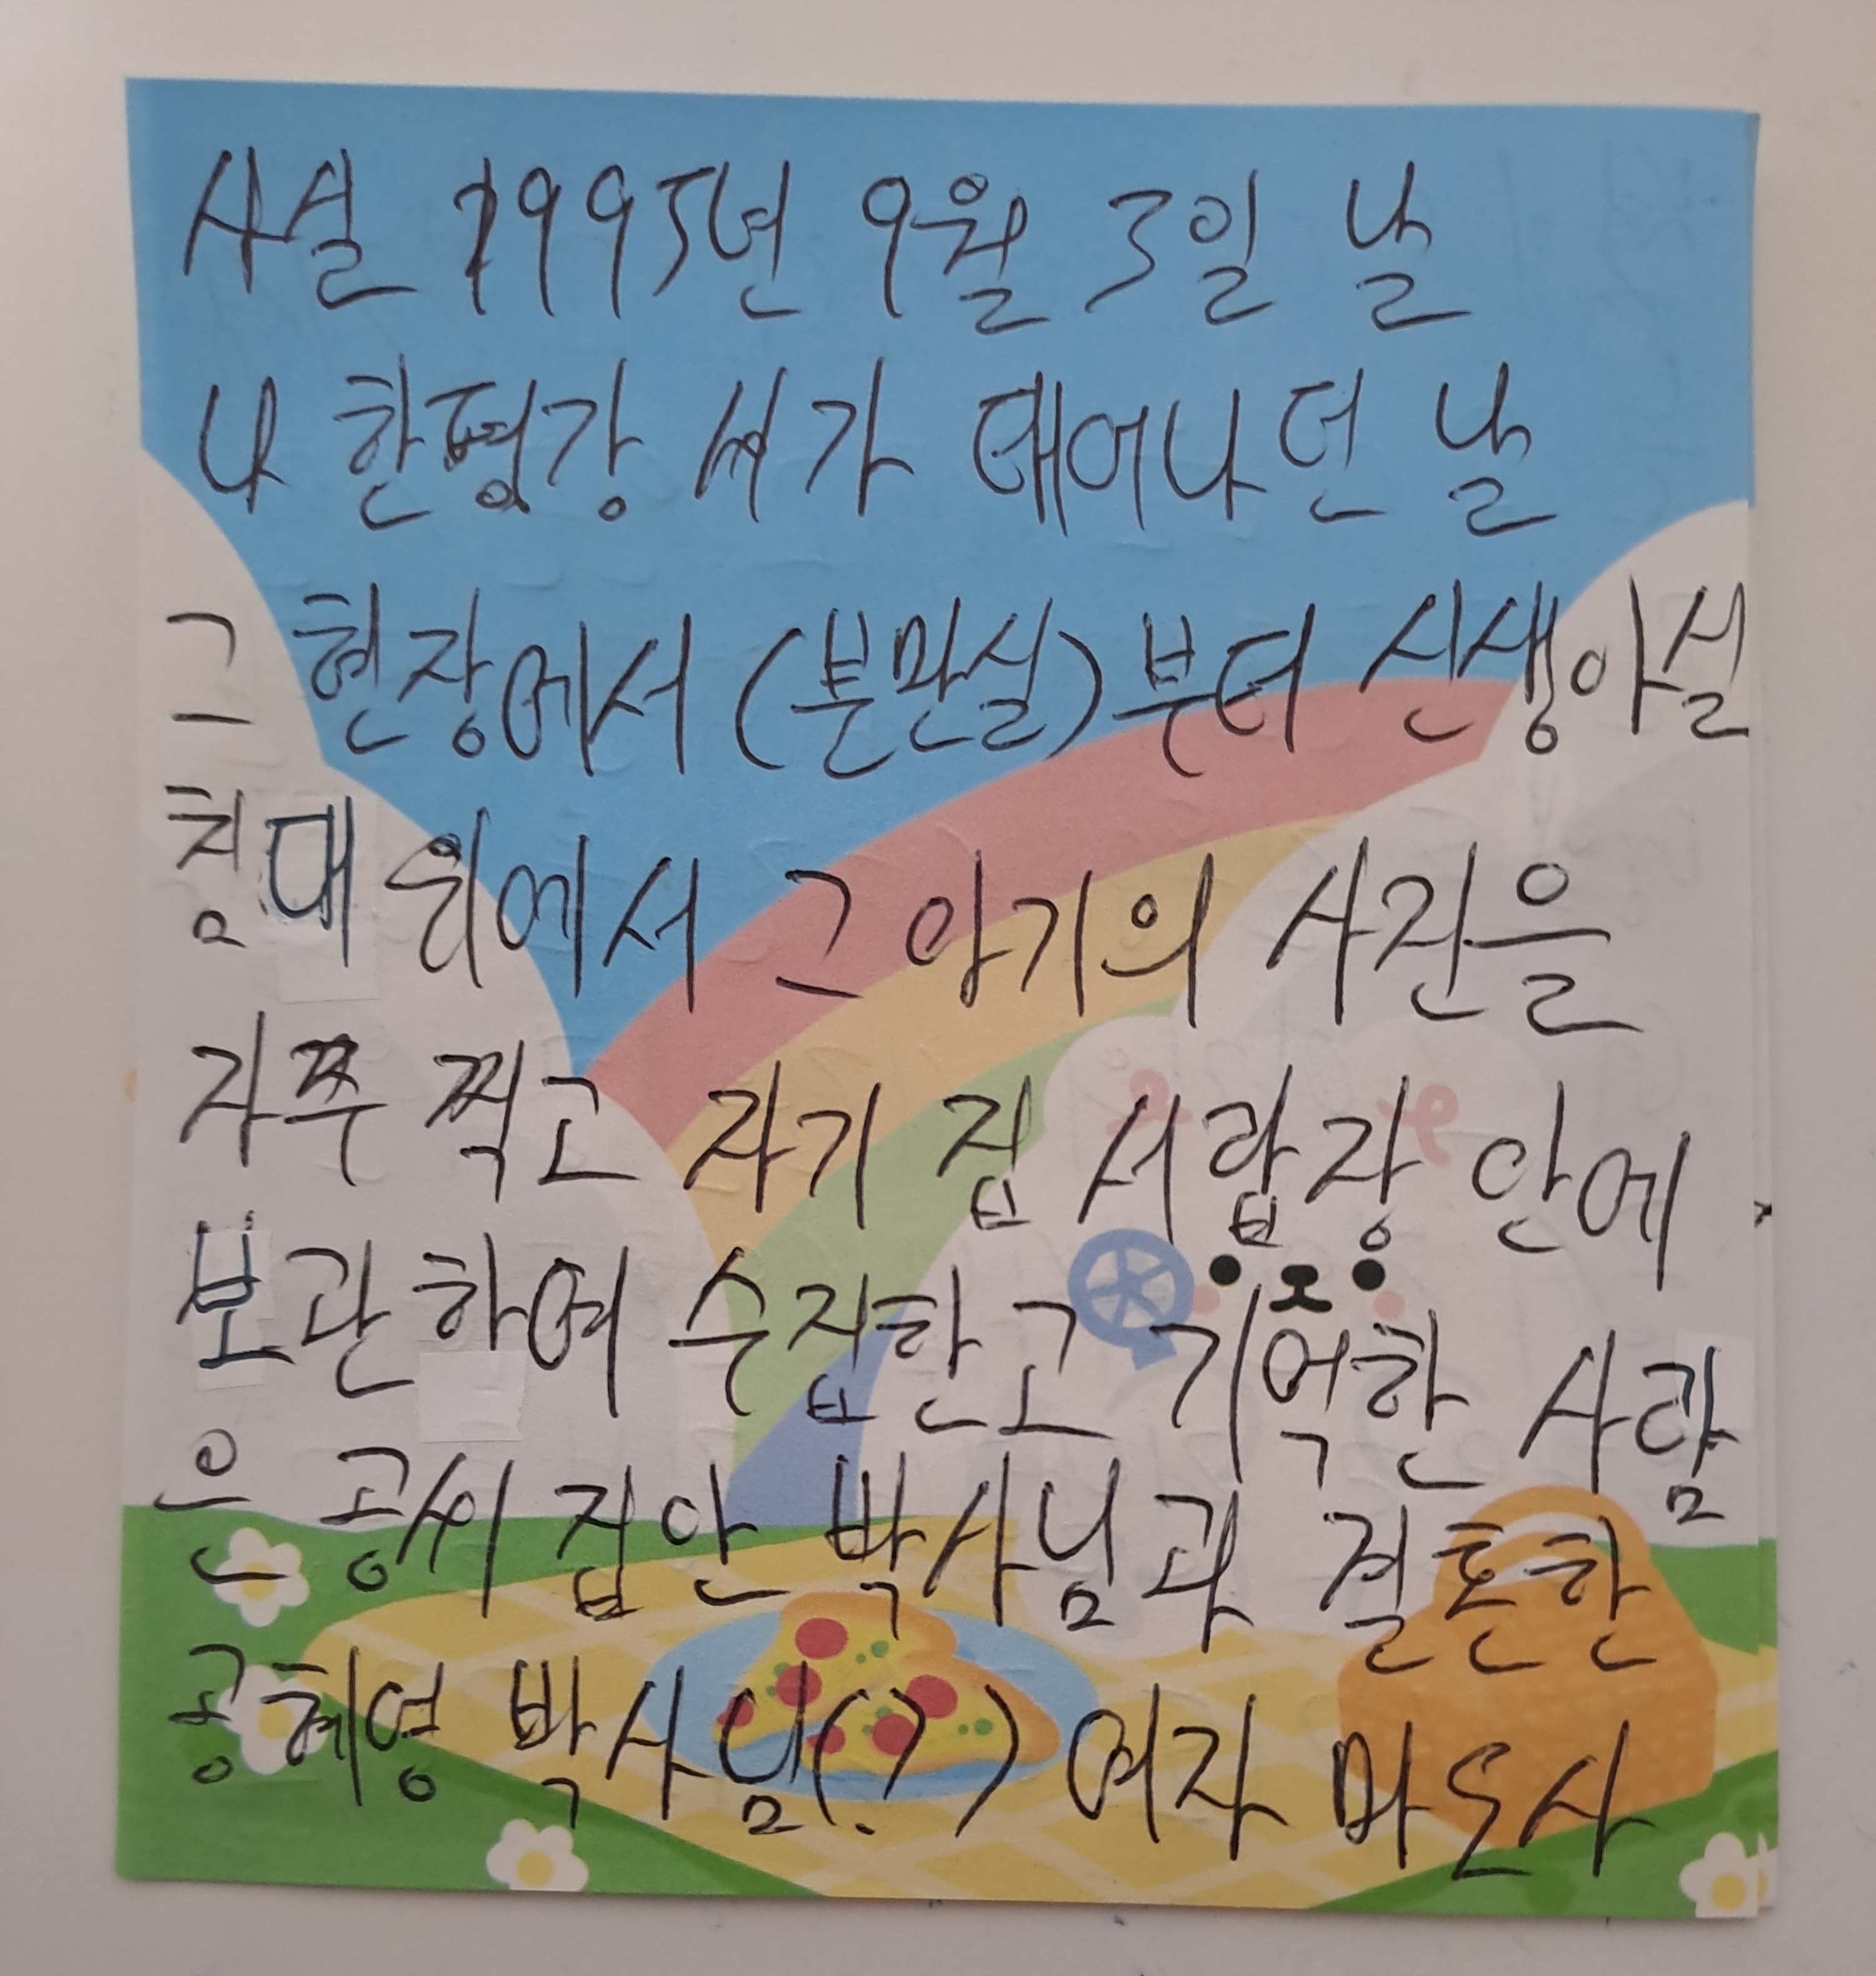 사실 1995년 9월 3일 날
나 한평강 씨가 태어나던 날
그 현장에서 (분만실)부터 신생아실
침대 위에서 그 아기의 사진을
자쭈 찍고 자기 집 서랍장 안에
보관하여 수집한고 기억한 사람
은 공씨 집안 박사님과 결혼한
공혜영 박사님(?) 여자 마도사